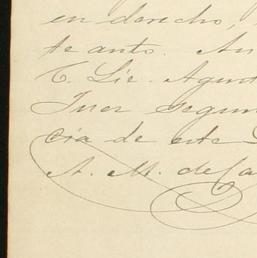 en derecho,
te auto. An
C. Lic. Agust
Juez segun
cia de este
A. M. de Ca